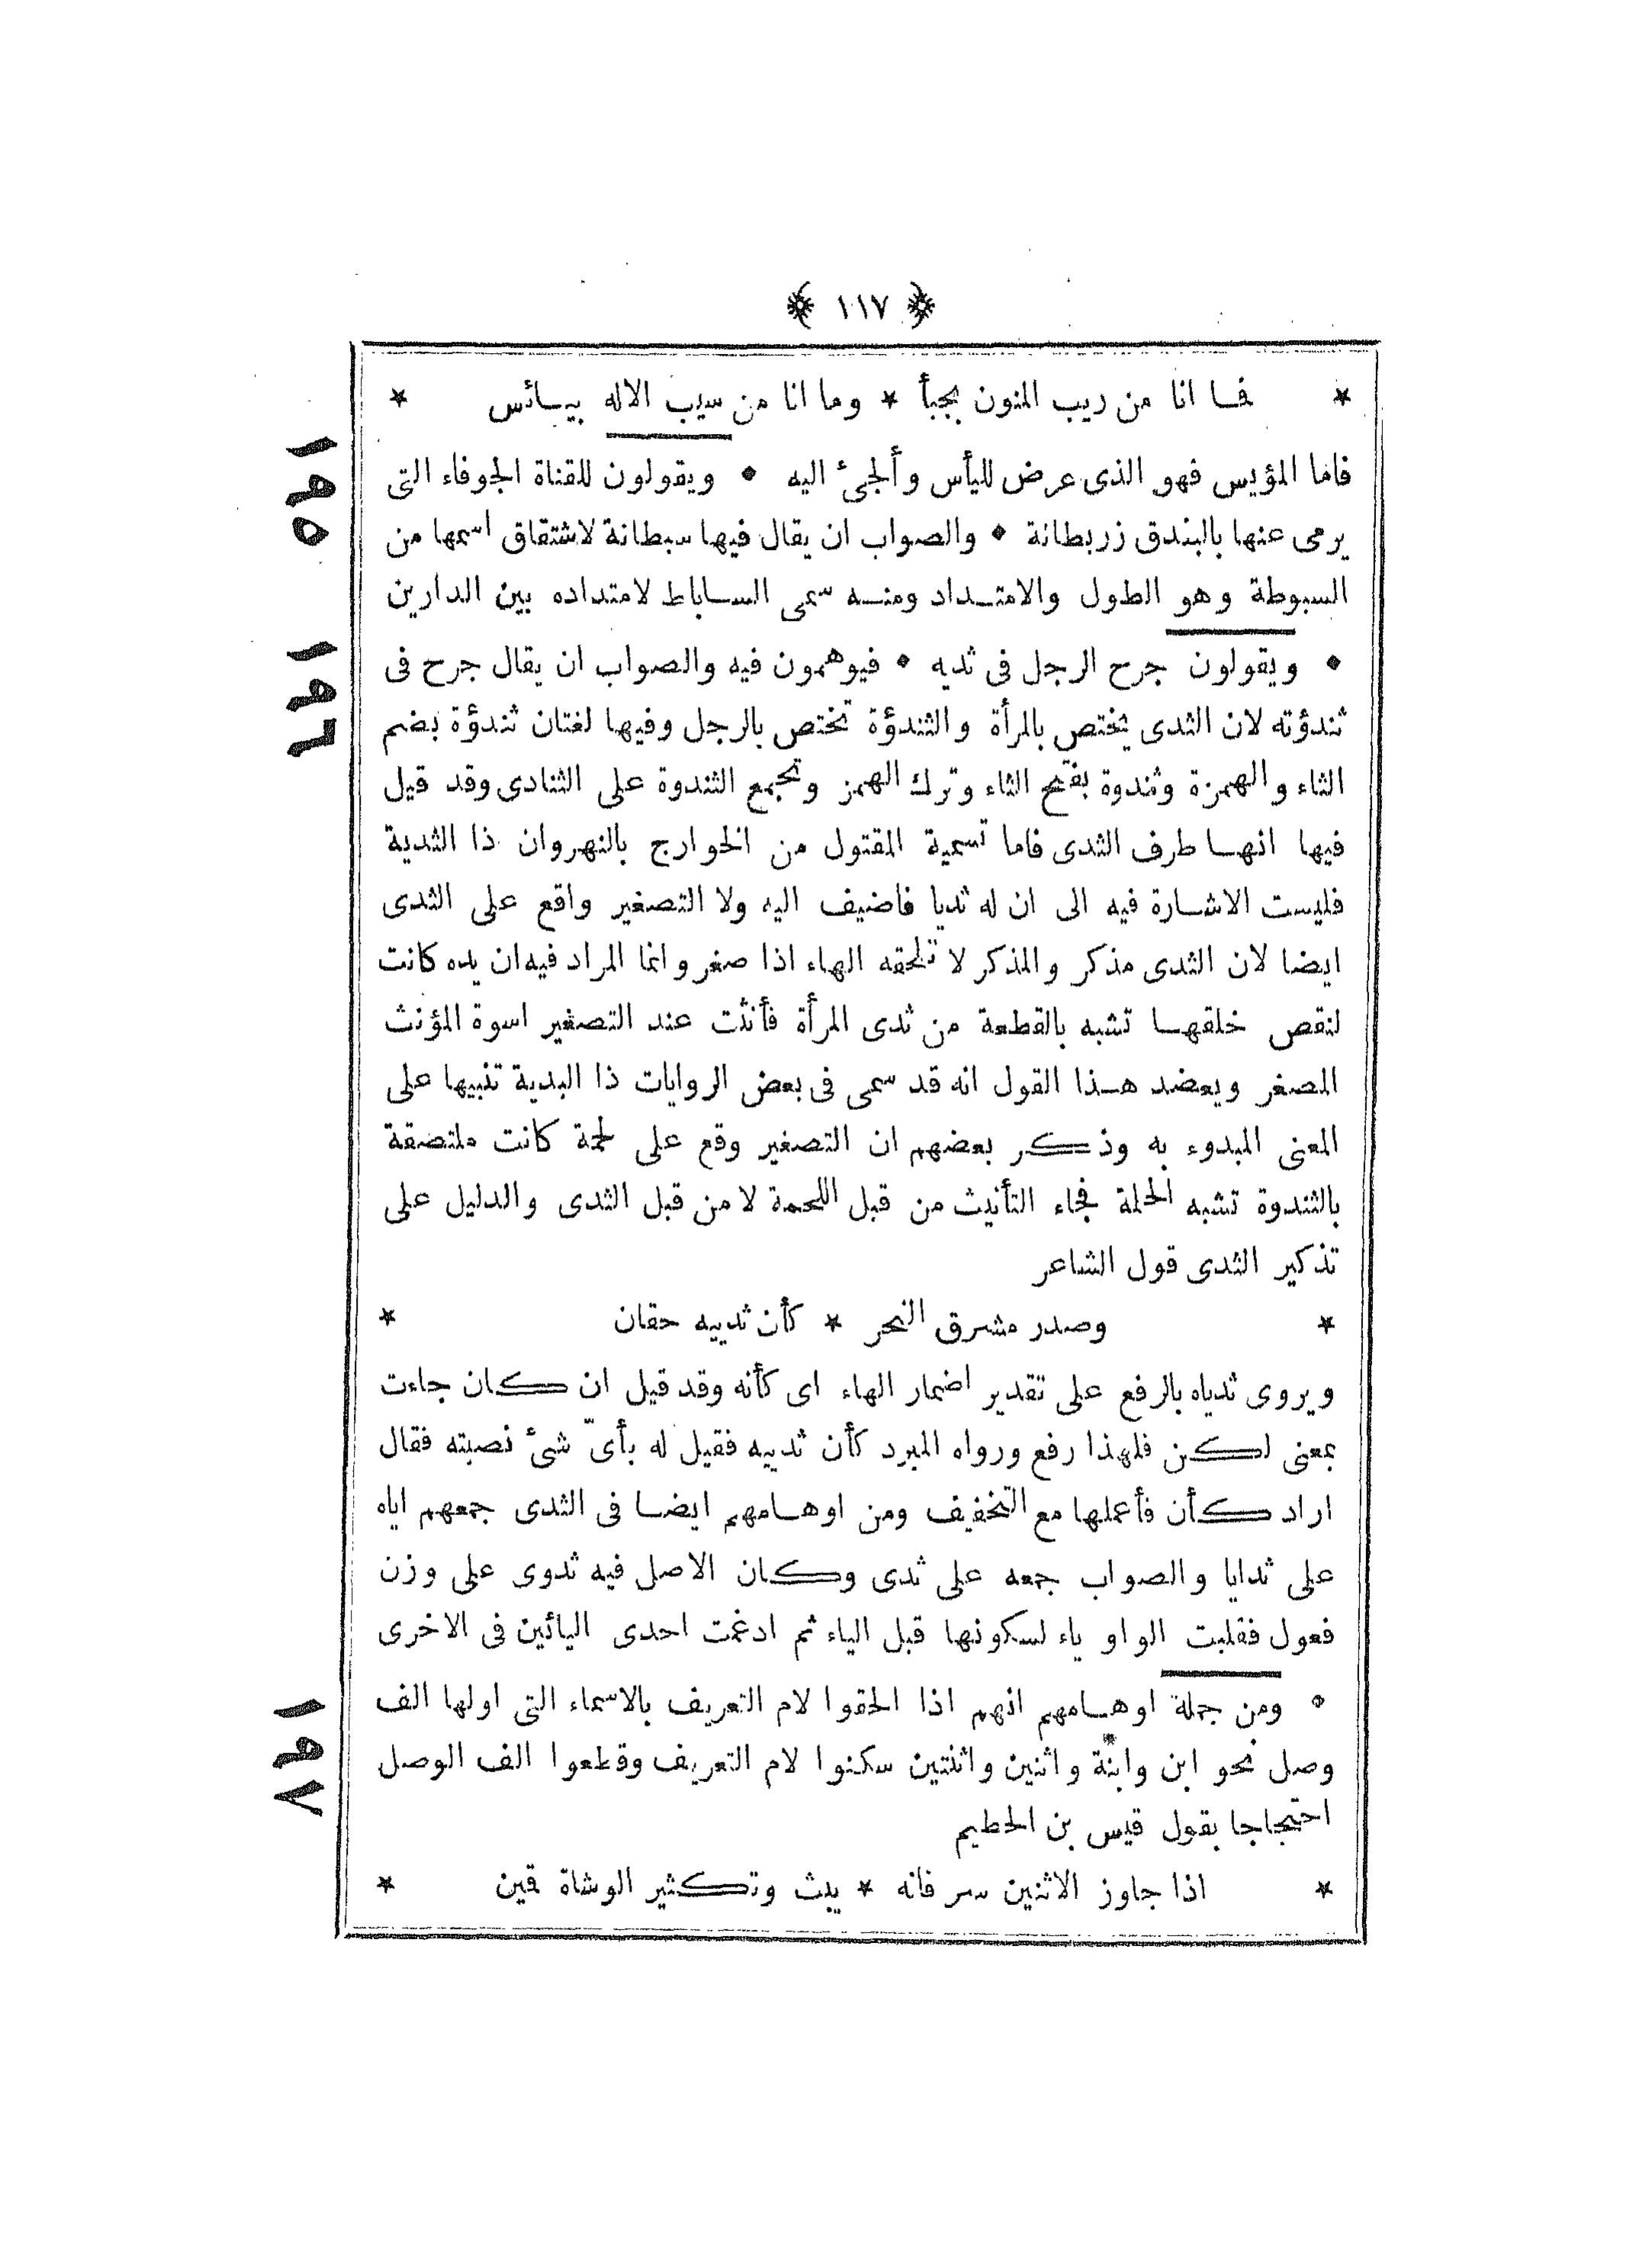 ﴿ ١١٧ ﴾
* فما انا من ريب المنون بجبأ * وما انا من سيب الاله بيائس *
١٩٥
فاما المؤيس فهو الذى عرض لليأس وألجئ اليه • ويقولون للقناة الجوفاء التى
يرمى عنها بالبندق زربطانة • والصواب ان يقال فيها سبطانة لاشتقاق اسمها من
السبوطة وهو الطول والامتداد ومنه سمى الساباط لامتداده بين الدارين
١٩٦
• ويقولون جرح الرجل فى ثديه • فيوهمون فيه والصواب ان يقال جرح فى
ثندؤته لان الثدى يختص بالمرأة والثندؤة تختص بالرجل وفيها لغتان ثندؤة بضم
الثاء والهمزة وثندوة بفتح الثاء وترك الهمز وتجمع الثندوة على الثنادى وقد قيل
فيها انها طرف الثدى فاما تسمية المقتول من الخوارج بالنهروان ذا الثدية
فليست الاشارة فيه الى ان له ثديا فاضيف اليه ولا التصغير واقع على الثدى
ايضا لان الثدى مذكر والمذكر لا تلحقه الهاء اذا صغر وانما المراد فيه ان يده كانت
لنقص خلقها تشبه بالقطعة من ثدى المرأة فأنثت عند التصغير اسوة المؤنث
المصغر ويعضد هذا القول انه قد سمى فى بعض الروايات ذا اليدية تنبيها على
المعنى المبدوء به وذكر بعضهم ان التصغير وقع على لحمة كانت ملتصقة
بالثندوة تشبه الحلمة فجاء التأنيث من قبل اللحمة لا من قبل الثدى والدليل على
تذكير الثدى قول الشاعر
* وصدر مشرق النحر * كأن ثدييه حقان *
ويروى ثدياه بالرفع على تقدير اضمار الهاء اى كأنه وقد قيل ان كان جاءت
بمعنى لكن فلهذا رفع ورواه المبرد كأن ثدييه فقيل له بأىّ شئ نصبته فقال
اراد كأن فأعملها مع التخفيف ومن اوهامهم ايضا فى الثدى جمعهم اياه
على ثدايا والصواب جمعه على ثدى وكان الاصل فيه ثدوى على وزن
فعول فقلبت الواو ياء لسكونها قبل الياء ثم ادغمت احدى اليائين فى الاخرى
١٩٧
• ومن جملة اوهامهم انهم اذا الحقوا لام التعريف بالاسماء التى اولها الف
وصل نحو ابن وابنة واثنين واثنتين سكنوا لام التعريف وقطعوا الف الوصل
احتجاجا بقول قيس بن الخطيم
* اذا جاوز الاثنين سر فانه * ببث وتكثير الوشاة قمين *